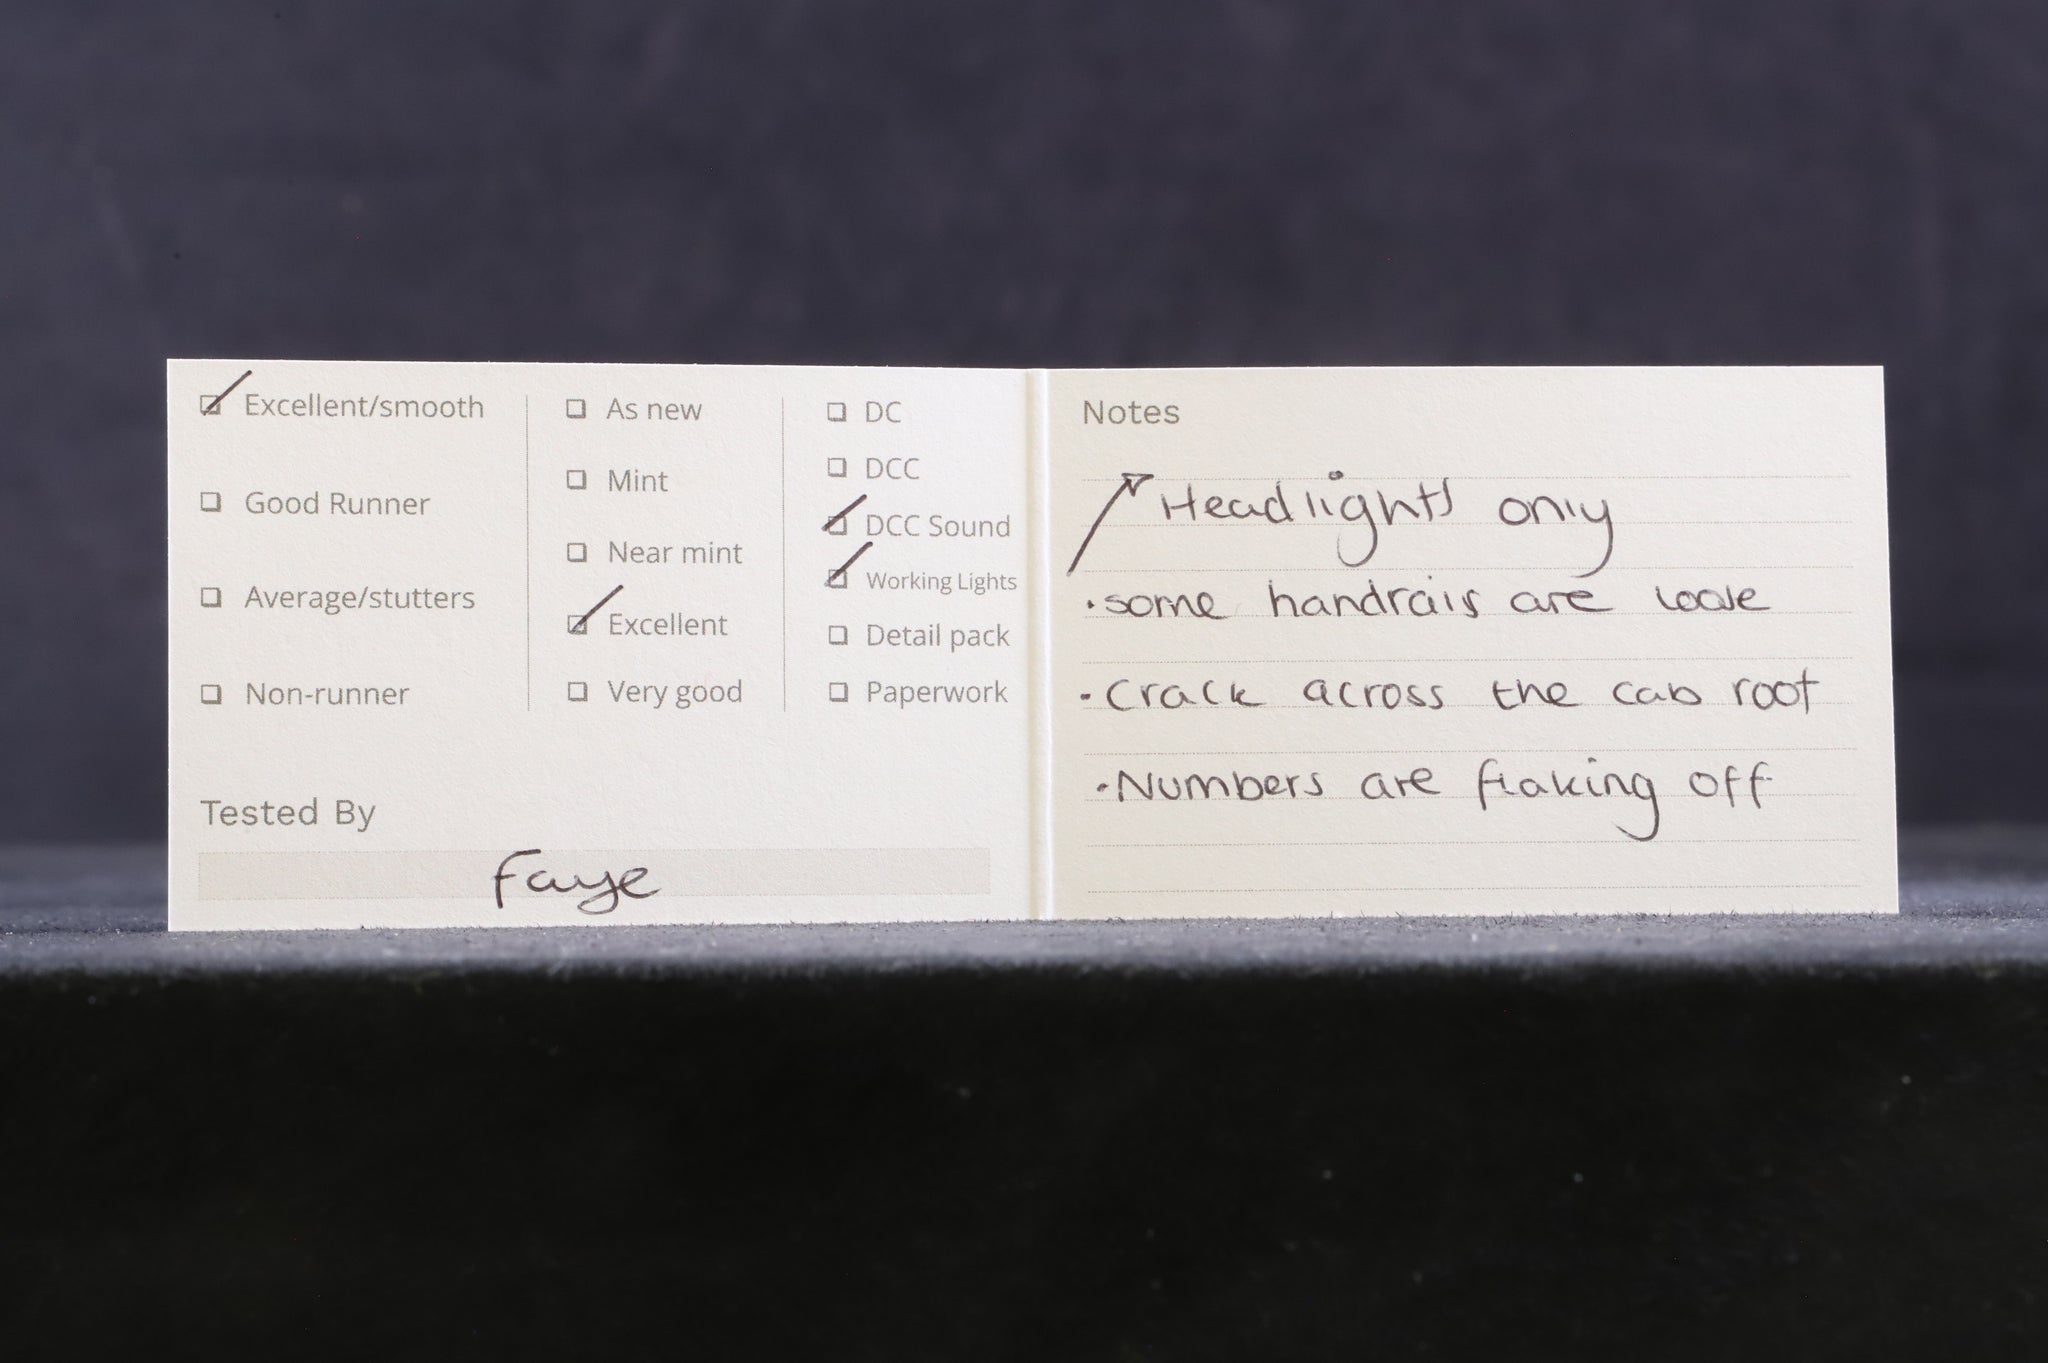 Excellent/smooth
Good Runner
Average/stutters
Non-runner
As new
Mint
Near mint
Excellent
Very good
DC
DCC
DCC Sound
Working Lights
Detail pack
Paperwork
Tested By
Faye
Notes
Headlights only
• some handrails are loose
• Crack across the cab roof
• Numbers are flaking off